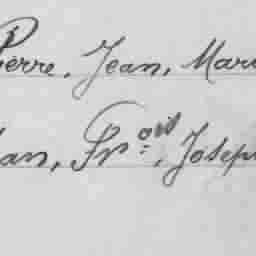 Pierre, Jean, Mari
an, Fr.ois, Joseph